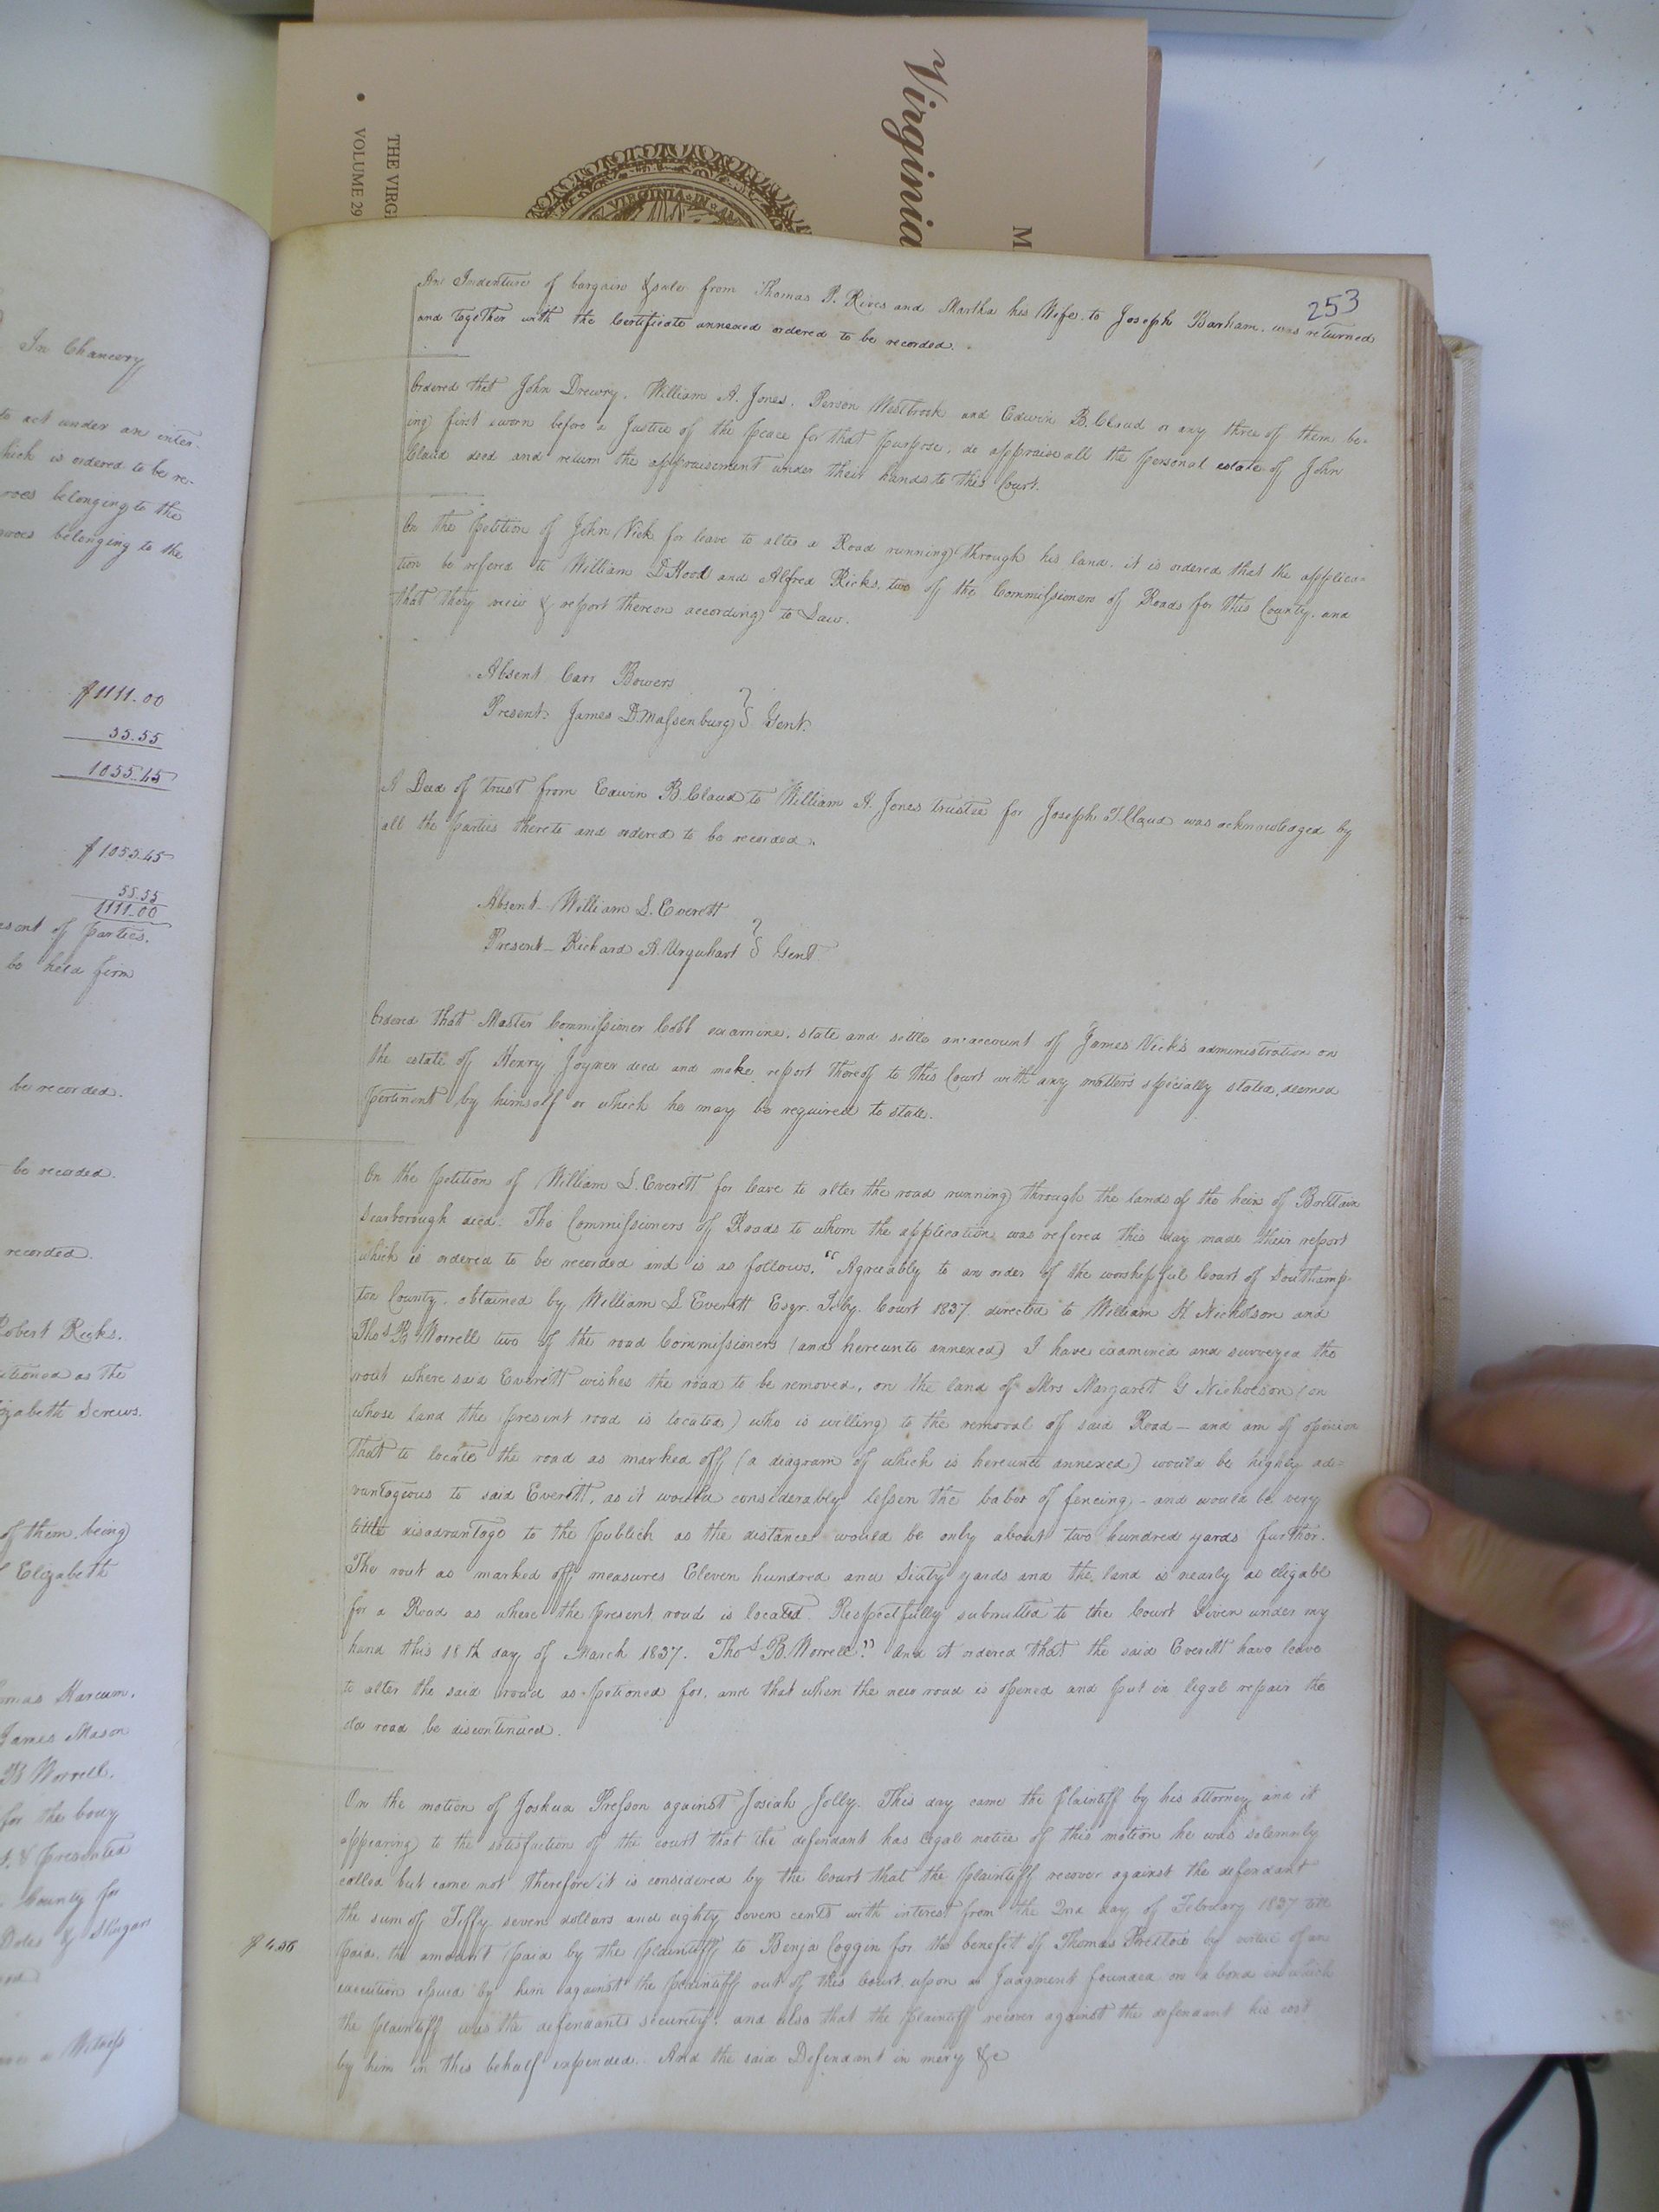 Virginia
M
THE VIRG
VOLUME 29
VIRGINIA IN
In Chancery
to act under an inter-
hich is ordered to be re-
roes belonging to the
groes belonging to the
$1111.00
55.55
1055.45
$1055.45
55.55
1111.00
esent of parties.
be held firm
be recorded.
be recorded.
recorded.
Robert Ricks.
itioned as the
izabeth Screws.
of them being
Elizabeth
omas Marcum.
James Mason
B Worrell.
for the bouy
& presented
County for
Doles &
a Witness
253
An Indenture of bargain & sale from Thomas P. Rives and Martha his Wife to Joseph Barham. was returned
and together with the Certificate annexed ordered to be recorded.
Ordered that John Drewry, William A. Jones, Person Westbrook and Edwin B. Claud or any three of them be-
ing first sworn before a Justice of the peace for that purpose, do appraise all the personal estate of John
Claud decd and return the appraisement under their hands to this Court.
On the petition of John Vick for leave to alter a Road running through his land. it is ordered that the applica-
tion be refered to William D Hood and Alfred Ricks, two of the Commissioners of Roads for this County, and
that they view & report thereon according to Law.
Absent Carr Bowers
Present James D. Massenburg } Gent.
A Deed of trust from Edwin B. Claud to William A. Jones trustee for Joseph T. Claud was acknowledged by
all the parties thereto and ordered to be recorded.
Absent - William S. Everett
Present - Richard A. Urquhart } Gent
Ordered that Master Commissioner Cobb examine, state and settle an account of James Vick's administration on
the estate of Henry Joyner decd and make report thereof to this Court with any matters specially stated, deemed
pertinent by himself or which he may be required to state.
On the petition of William S. Everett for leave to alter the road running through the lands of the heirs of Brittain
Scarborough decd. The Commissioners of Roads to whom the application was refered this day made their report
which is ordered to be recorded and is as follows. "Agreeably to an order of the worshipful Court of Southamp-
ton County, obtained by William S Everett Esqr. Feby. Court 1837 directed to William H Nicholson and
Thos. B Worrell two of the road Commissioners (and hereunto annexed) I have examined and surveyed the
rout where said Everett wishes the road to be removed, on the land of Mrs Margaret G Nicholson (on
whose land the present road is located) who is willing to the removal of said Road - and am of opinion
that to locate the road as marked off (a diagram of which is hereunto annexed) would be highly ad=
vantageous to said Everett, as it would considerably lessen the labor of fencing - and would be very
little disadvantage to the publick as the distance would be only about two hundred yards further.
The rout as marked off measures Eleven hundred and Sixty yards and the land is nearly as eligable
for a Road as where the present road is located. Respectfully submitted to the Court Given under my
hand this 18th day of March 1837. Thos. B. Worrell." And it ordered that the said Everett have leave
to alter the said road as petioned for, and that when the new road is opened and put in legal repair the
old road be discontinued.
On the motion of Joshua Presson against Josiah Jolly. This day came the plaintiff by his attorney and it
appearing to the satisfaction of the court that the defendant has legal notice of this motion he was solemnly
called but came not therefore it is considered by the Court that the plaintiff recover against the defendant
the sum of Fiffy seven dollars and eighty seven cents with interest from the 2nd day of February 1837 till
$4.56
paid, the amount paid by the plaintiff to Benja Coggin for the benefit of Thomas by virtue of an
execution issued by him against the plaintiff out of this Court upon a Judgment founded on a bond in which
the plaintiff was the defendants security, and also that the plaintiff recover against the defendant his cost
by him in this behalf expended. And the said Defendant in mercy &c